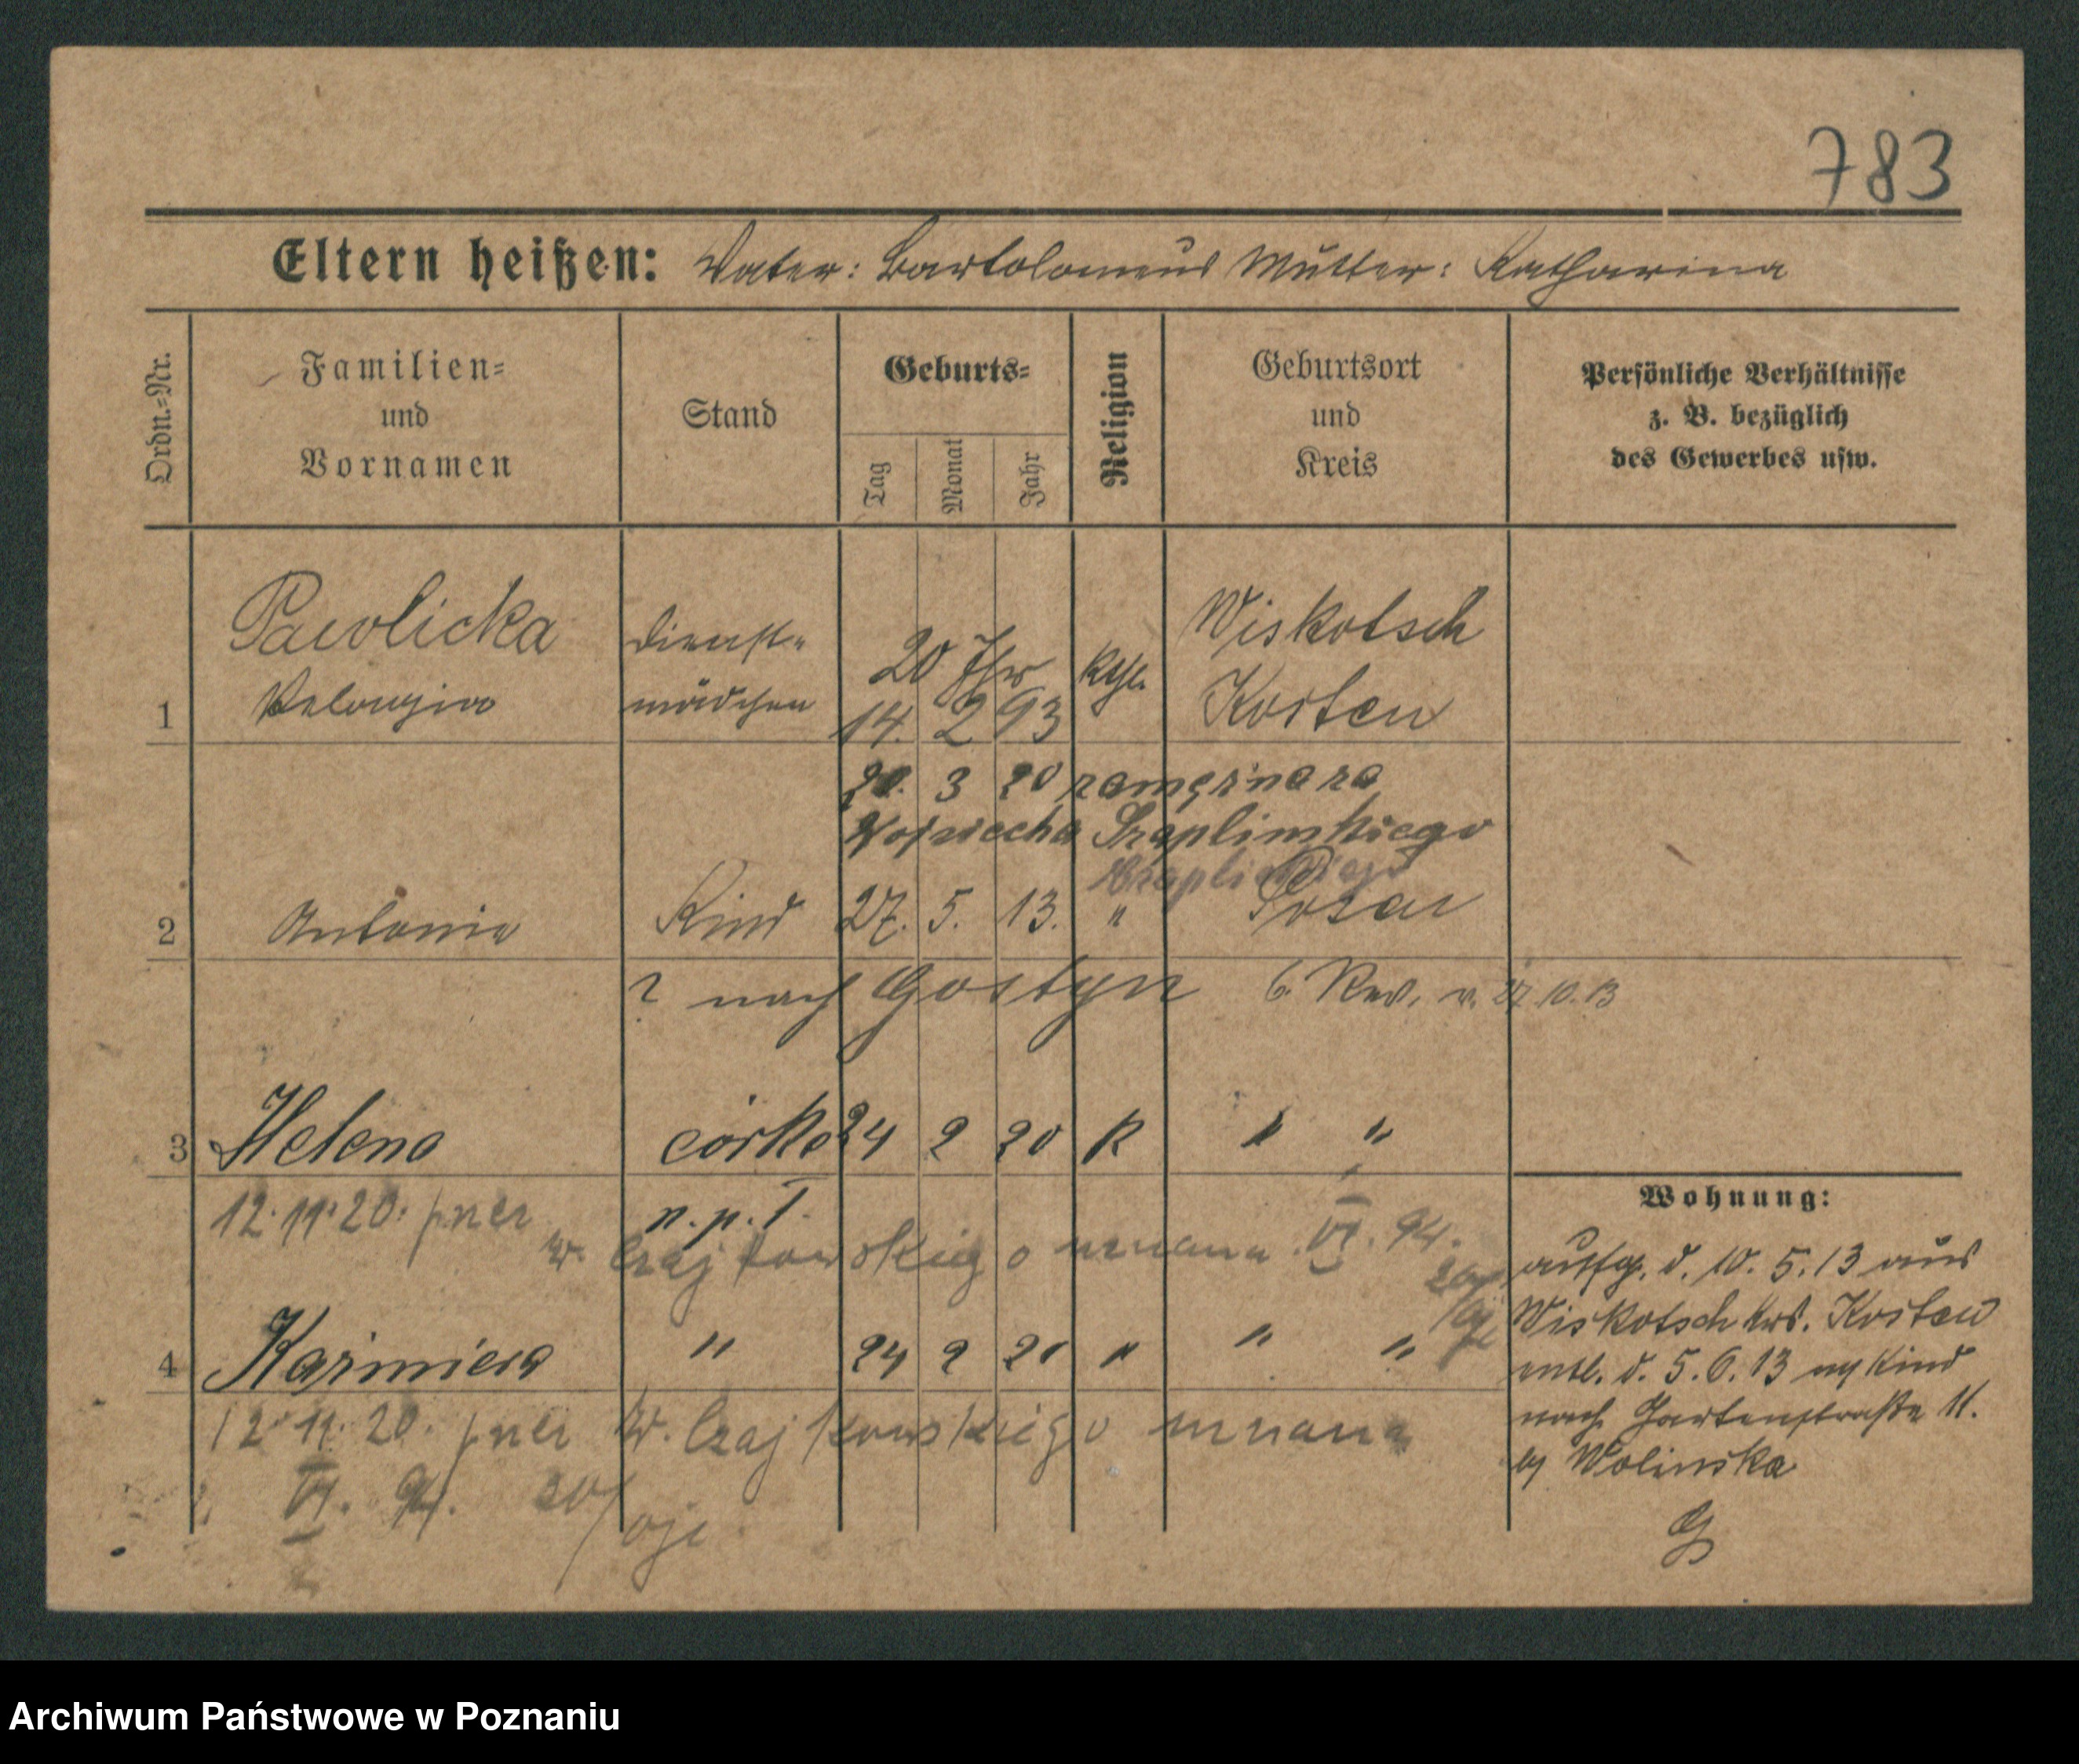 783
Eltern heißen: Vater: Bartolomeus Mutter: Katharina
Ordn.=Nr.
Familien=
und
Vornamen
Stand
Geburts=
Tag
Monat
Jahr
Religion
Geburtsort
und
Kreis
Persönliche Verhältnisse
z. B. bezüglich
des Gewerbes usw.
1 Pawlicka Dienst= 20 Wiskotsch
Pelagia mädchen 14. 2 93 kth. Kosten
20. 3 20
Wojciecha Szaplinskiego
2 Antonie Kind 27. 5. 13. " Posen
? nach Gostyn 6. Rev. v. 27. 10. 13
3 Helena córka 24 2 20 K " "
12. 11. 20.
n. p. T.
w. Czajkowskiego VI. 94.
4 Kazimiera " 24 2 20 " " "
12. 11. 20. W. Czajkowskiego
VI. 94.
Wohnung:
d. 10. 5. 13 aus
Wiskotsch Krs. Kosten
entl. d. 5. 6. 13 Kind
nach Gartenstraße 11.
Wolinska
Archiwum Państwowe w Poznaniu